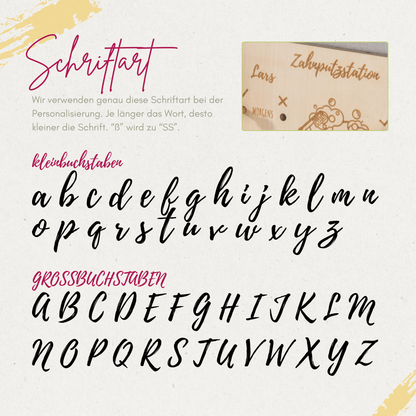 Schriftart
Wir verwenden genau diese Schriftart bei der
Personalisierung. Je länger das Wort, desto
kleiner die Schrift. "ß" wird zu "SS".
Zahnputzstation
Lars
MORGENS
kleinbuchstaben
a b c d e f g h i j k l m n
o p q r s t u v w x y z
GROSSBUCHSTABEN
A B C D E F G H I J K L M
N O P Q R S T U V W X Y Z